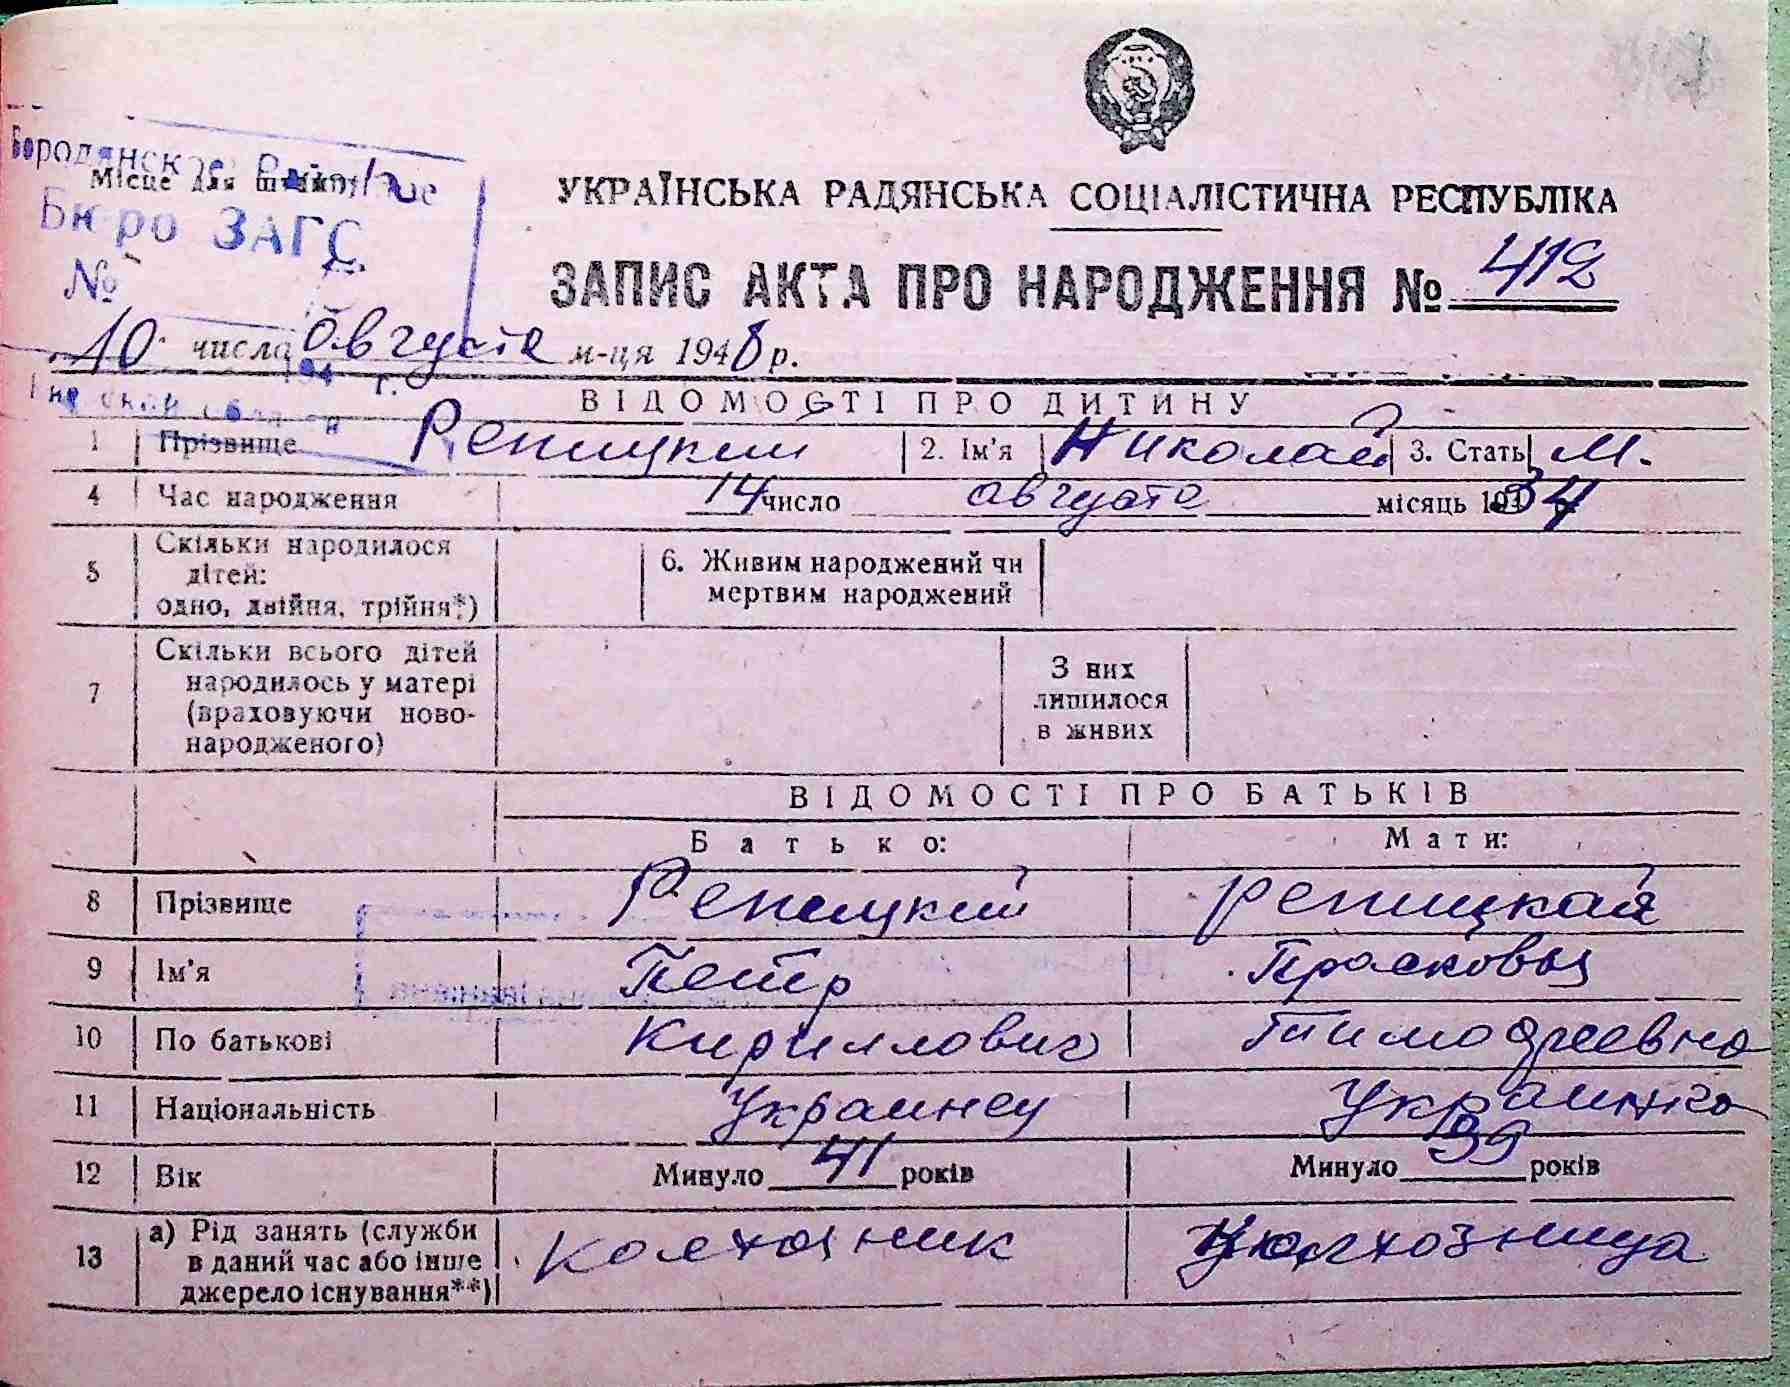 Бородянское Районное
Місце для штампу
Бюро ЗАГС
№
УКРАЇНСЬКА РАДЯНСЬКА СОЦІАЛІСТИЧНА РЕСПУБЛІКА
ЗАПИС АКТА ПРО НАРОДЖЕННЯ № 412
10 числа августа м-ця 1948 р.
194 г.
ВІДОМОСТІ ПРО ДИТИНУ
1 Прізвище Репицкий 2. Ім'я Николай 3. Стать М.
4 Час народження 14 число августа місяць 1934
5 Скільки народилося
дітей:
одно, двійня, трійня*)
6. Живим народжений чи
мертвим народжений
7 Скільки всього дітей
народилось у матері
(враховуючи ново-
народженого)
З них
лишилося
в живих
ВІДОМОСТІ ПРО БАТЬКІВ
Батько: Мати:
8 Прізвище Репицкий Репицкая
9 Ім'я Петр Прасковья
10 По батькові Кириллович Тимофеевна
11 Національність Украинец Украинка
12 Вік Минуло 41 років Минуло 39 років
13 а) Рід занять (служби
в даний час або інше
джерело існування**)
Колхозник Колхозница